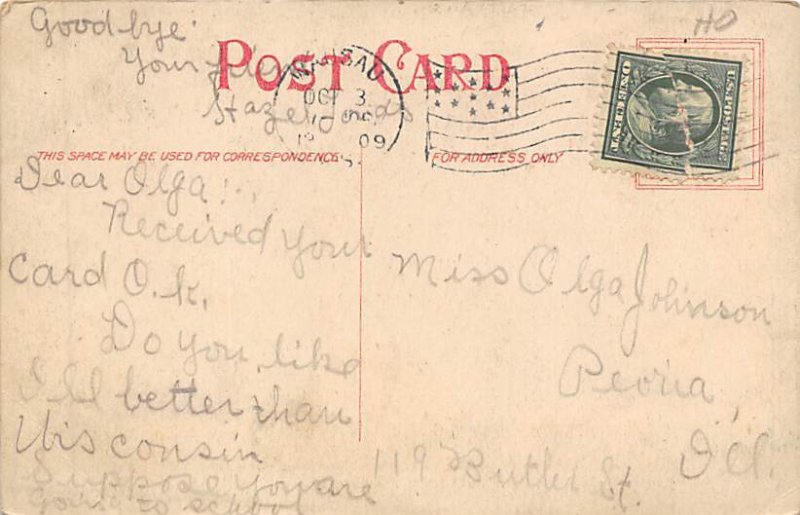 Good-bye.
Your friend
POST CARD
WAUSAU
OCT 3
1909
THIS SPACE MAY BE USED FOR CORRESPONDENCE
FOR ADDRESS ONLY
U.S. POSTAGE
ONE CENT
Dear Olga:.
Received your
card O.K.
Do you like
Ill better than
Wisconsin
Suppose you are
going to school
Miss Olga Johnson
Peoria,
Ill.
119 Butler St.